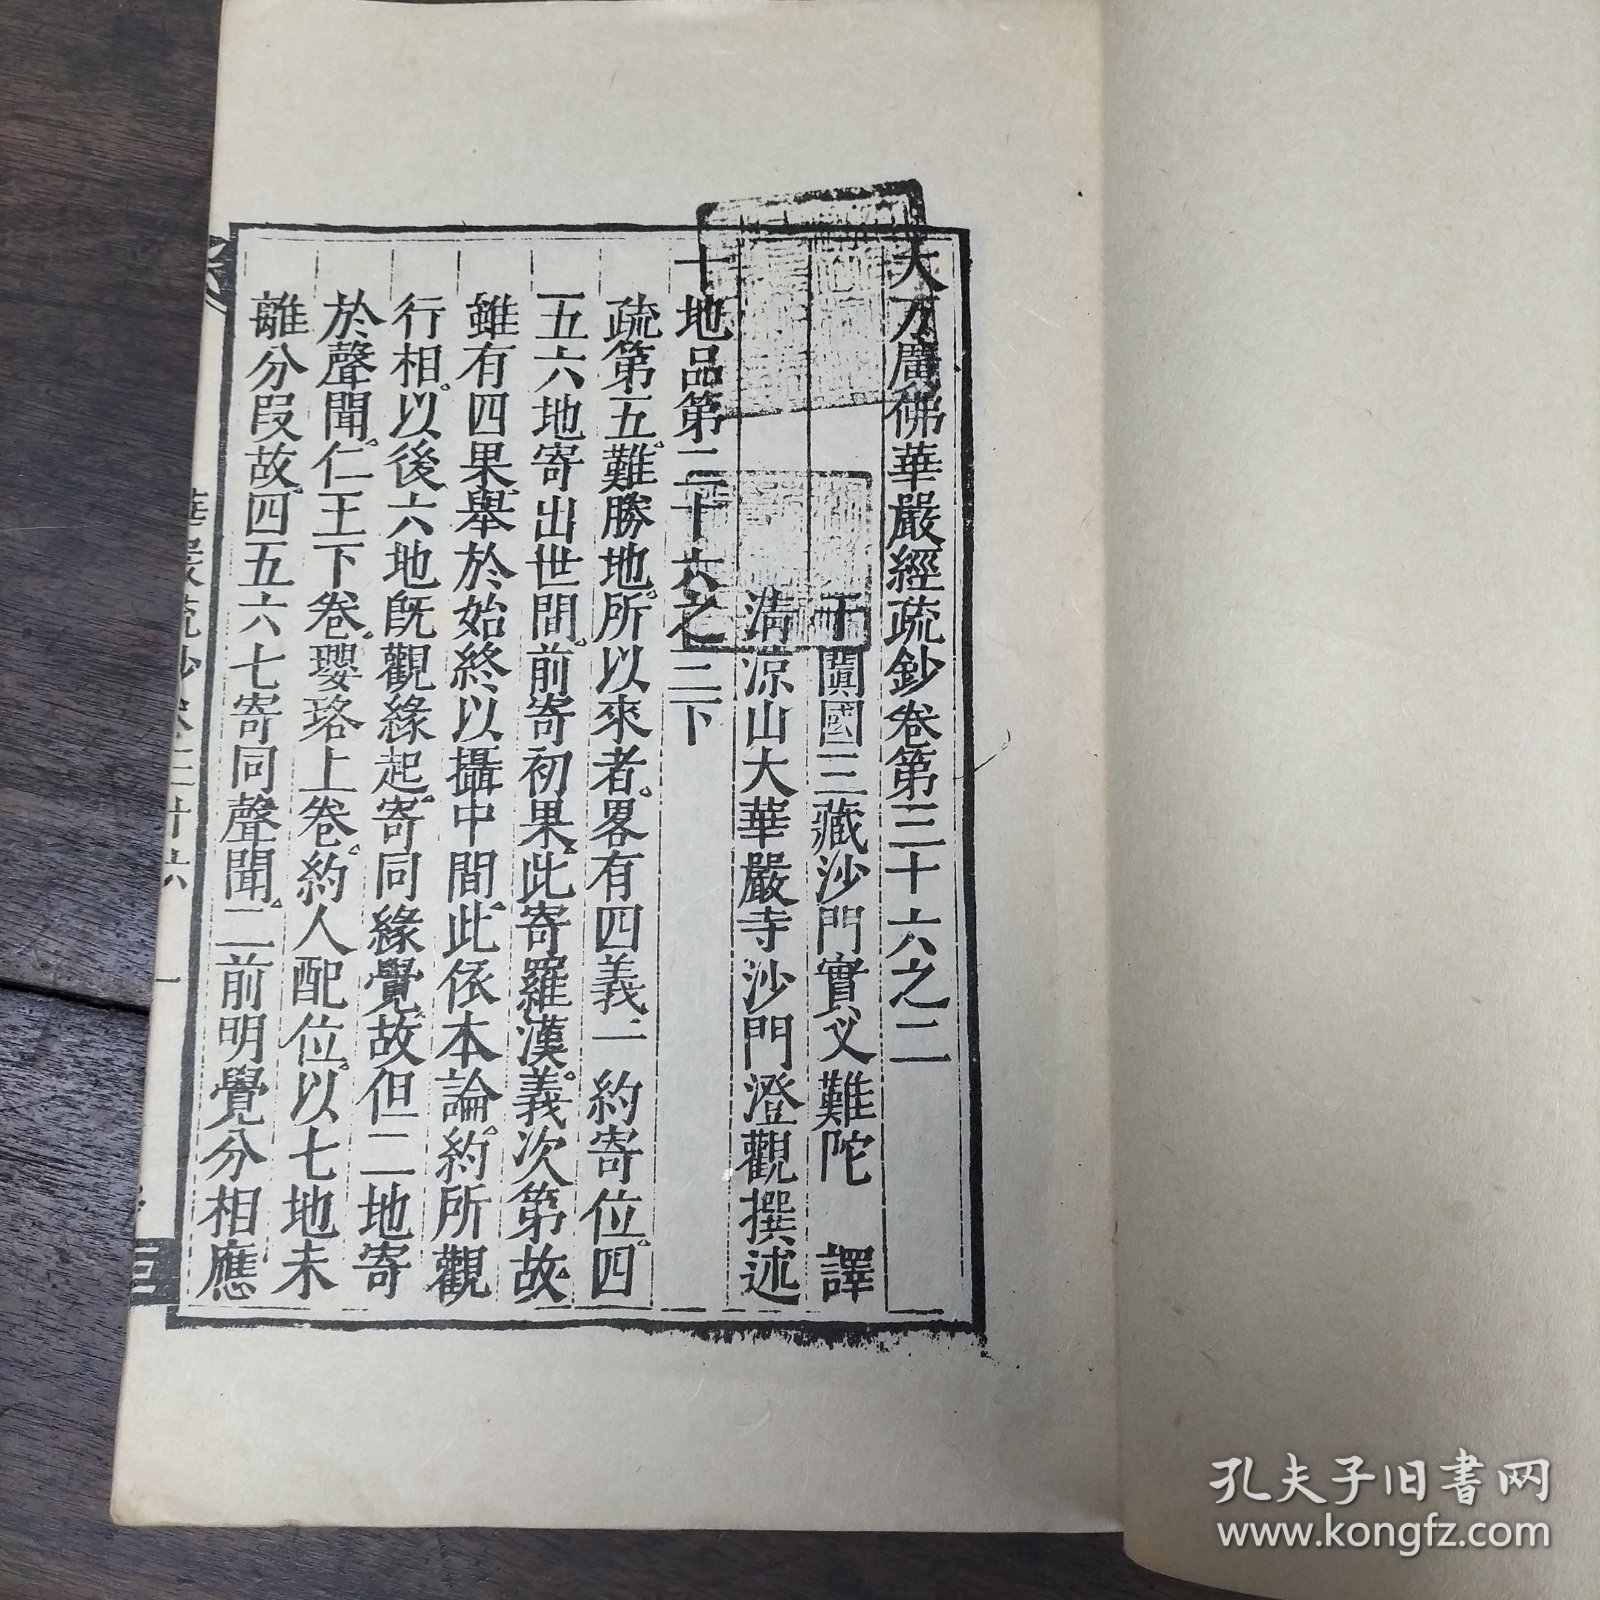 大方廣佛華嚴經疏鈔卷第三十六之二
于闐國三藏沙門實叉難陀 譯
清涼山大華嚴寺沙門澄觀撰述
十地品第二十六之三下
疏第五難勝地所以來者畧有四義一約寄位四
五六地寄出世間前寄初果此寄羅漢義次第故
雖有四果舉於始終以攝中間此依本論約所觀
行相以後六地旣觀緣起寄同緣覺故但二地寄
於聲聞仁王下卷瓔珞上卷約人配位以七地未
離分叚故四五六七寄同聲聞二前明覺分相應
華嚴疏鈔卷三十六 一
孔夫子旧书网
www.kongfz.com